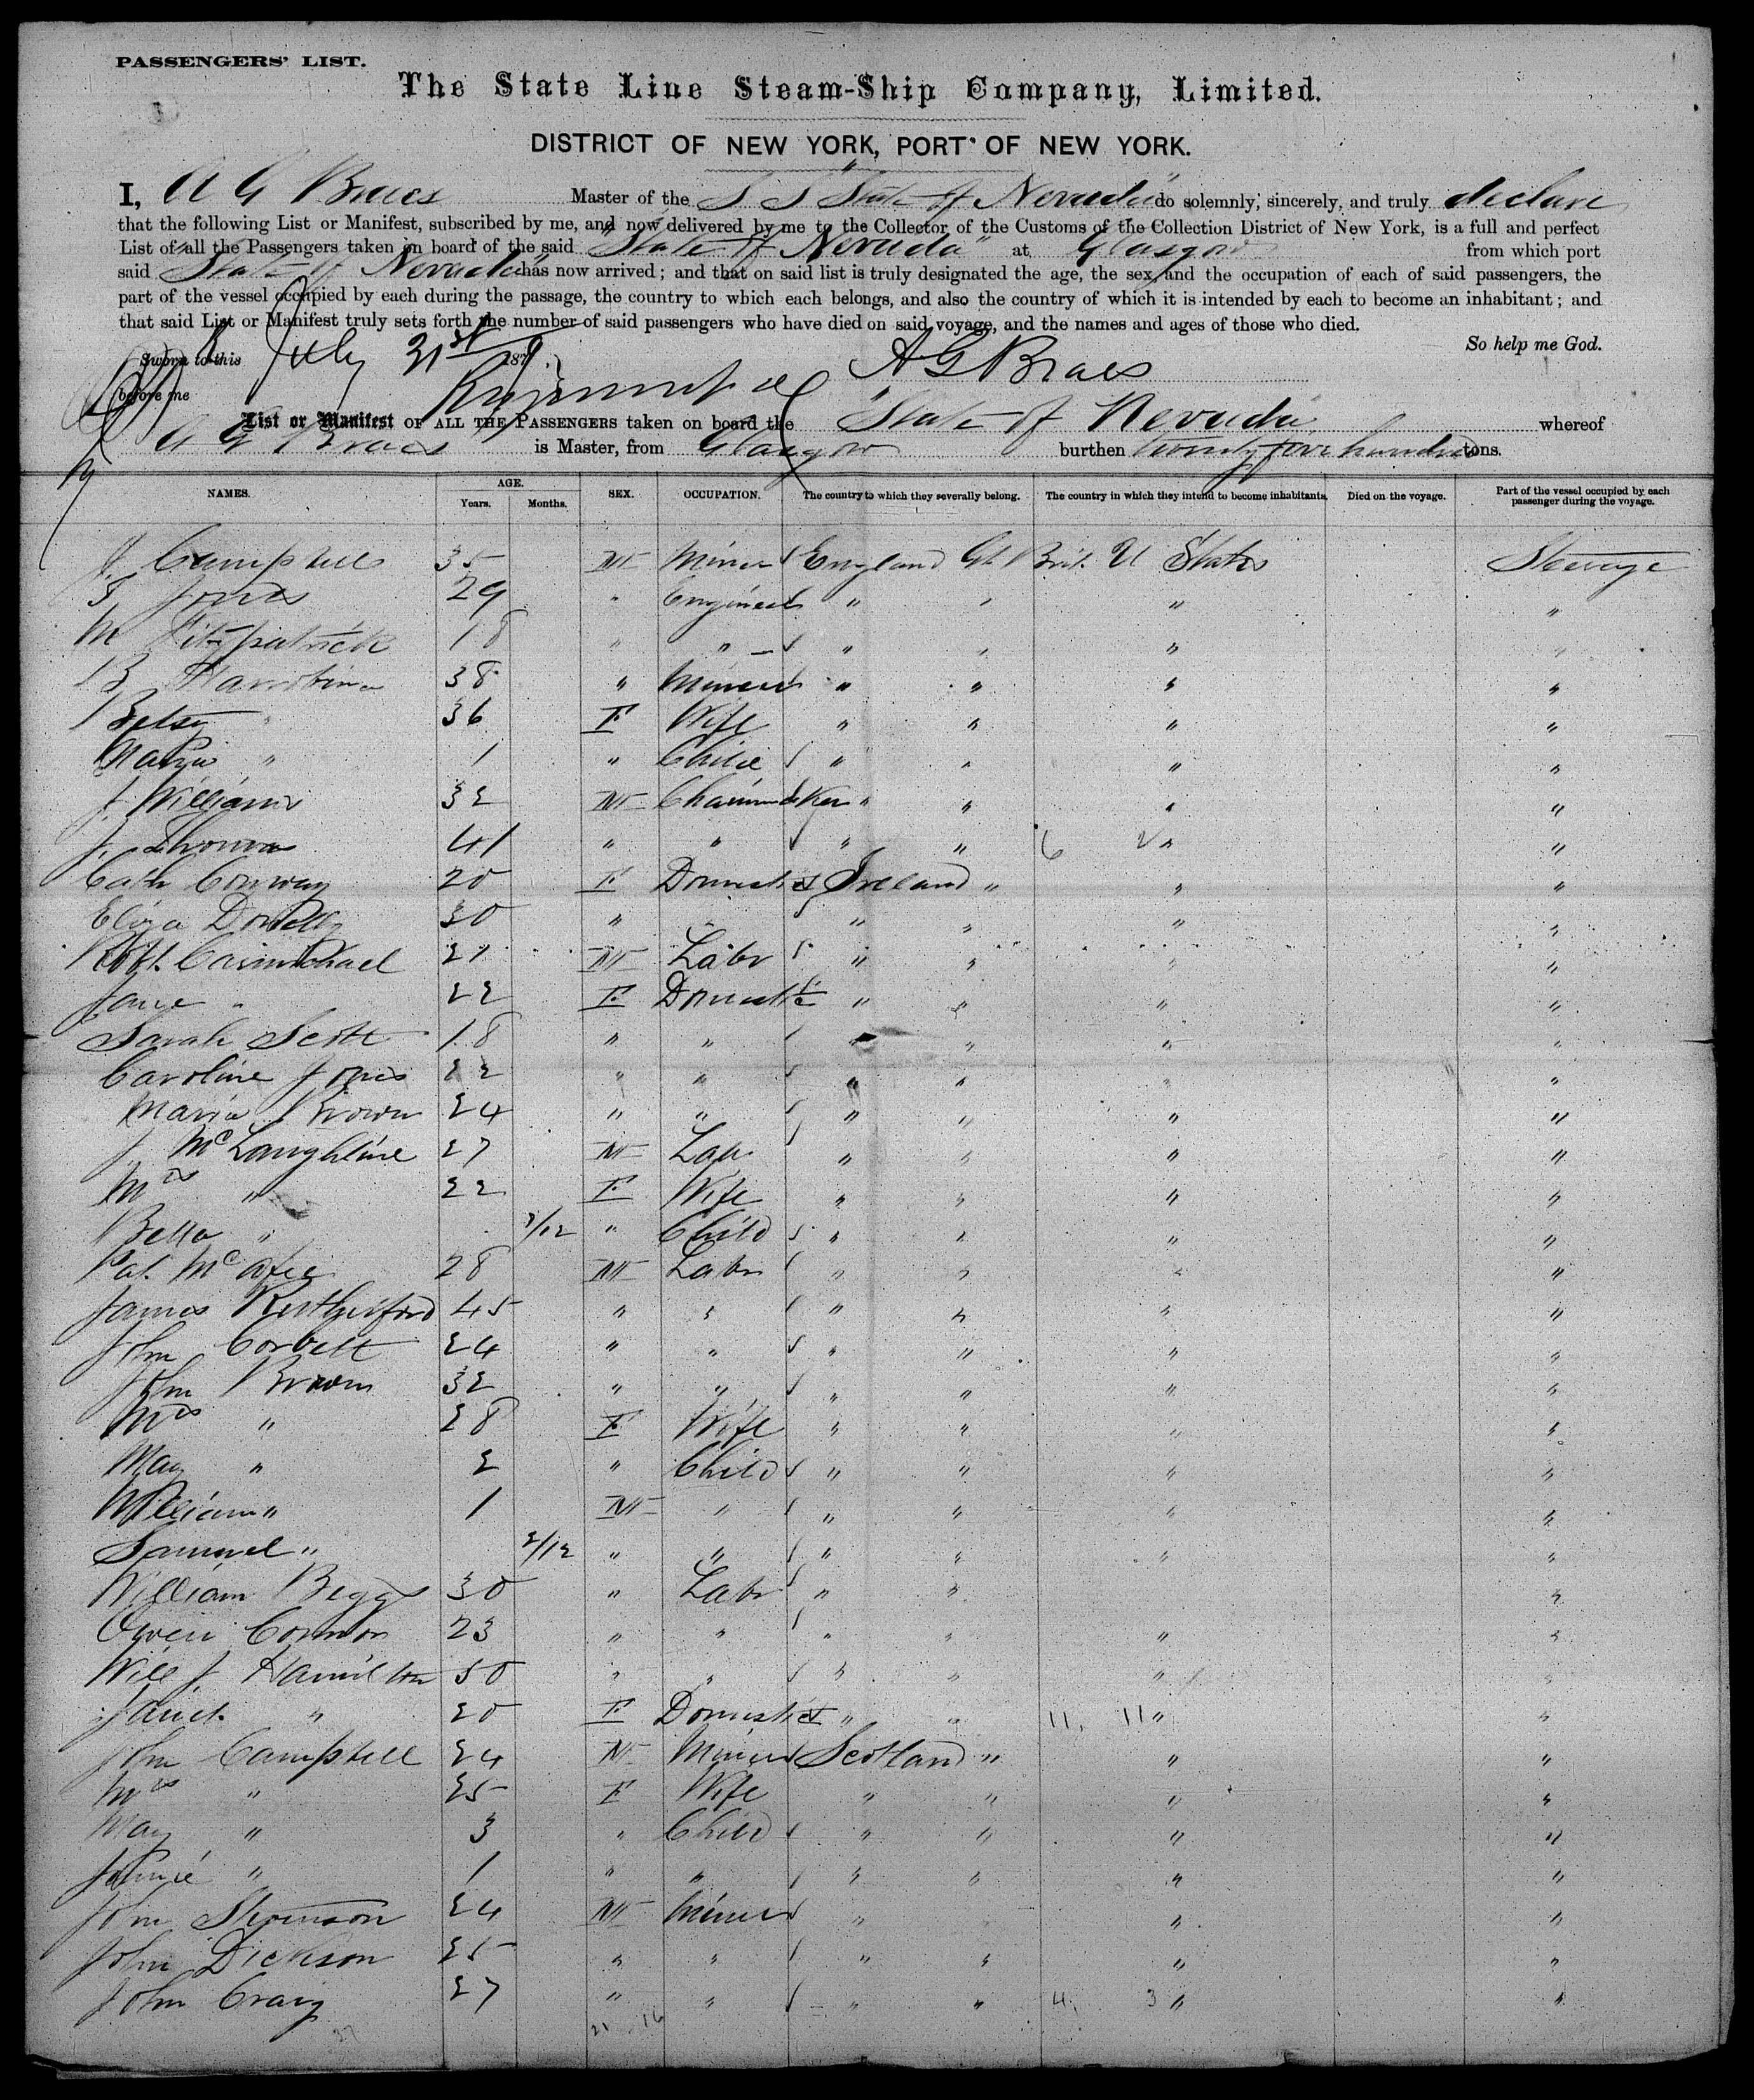 PASSENGERS' LIST.
The State Line Steam-Ship Company, Limited.
DISTRICT OF NEW YORK, PORT OF NEW YORK.
I, A G Braes Master of the S S "State of Nevada" do solemnly, sincerely, and truly declare
that the following List or Manifest, subscribed by me, and now delivered by me to the Collector of the Customs of the Collection District of New York, is a full and perfect
List of all the Passengers taken on board of the said "State of Nevada" at Glasgow from which port
said "State of Nevada" has now arrived; and that on said list is truly designated the age, the sex, and the occupation of each of said passengers, the
part of the vessel occupied by each during the passage, the country to which each belongs, and also the country of which it is intended by each to become an inhabitant; and
that said List or Manifest truly sets forth the number of said passengers who have died on said voyage, and the names and ages of those who died.
So help me God.
Sworn to this July 31st 1879. A G Braes
before me
List or Manifest OF ALL THE PASSENGERS taken on board the "State of Nevada" whereof
A G Braes is Master, from Glasgow burthen hundred tons.
NAMES. AGE. Years. Months. SEX. OCCUPATION. The country to which they severally belong. The country in which they intend to become inhabitants. Died on the voyage. Part of the vessel occupied by each passenger during the voyage.
J Campbell 35 M Miner England Gt Brit. U States Steerage
T Jones 29 " Engineer " " " "
M Fitzpatrick 18 " " " " " "
B 38 " Miner " " " "
Betsy " 36 F Wife " " " "
Maria " 1 " Child " " " "
J. Williams 32 M Chainmaker " " " "
J. Thomas 41 " " " " 6 2 " "
Cath Conway 20 F Domestic Ireland " " "
Eliza Donelly 30 " " " " " "
Robt. Carmichael 21 M Labr " " " "
Jane " 22 F Domestic " " " "
Sarah Scott 18 " " " " " "
Caroline Jones 22 " " " " " "
Maria Brown 24 " " " " " "
J McLaughline 27 M Labr " " " "
Mrs " 22 F Wife " " " "
Bella " /12 " Child " " " "
Pat. McAfee 28 M Labr " " " "
James Rutherford 45 " " " " " "
John Corbett 24 " " " " " "
John Brown 32 " " " " " "
Mrs " 28 F Wife " " " "
May " 2 " Child " " " "
William " 1 M " " " " "
Samuel " 2/12 " " " " " "
William Beggs 30 " Labr " " "
Owen Connor 23 " " " " " "
Will J. Hamilton 50 " " " " " "
Janet " 20 F Domestic " " 11, 11 " "
John Campbell 24 M Miner Scotland " " "
Mrs " 25 F Wife " " " "
May " 3 " Child " " " "
" 1 " " " " " "
John Stevenson 24 M Miner " " "
John Dickson 25 " " " " " "
John Craig 27 " " " " 4, 3 " "
21 16
37